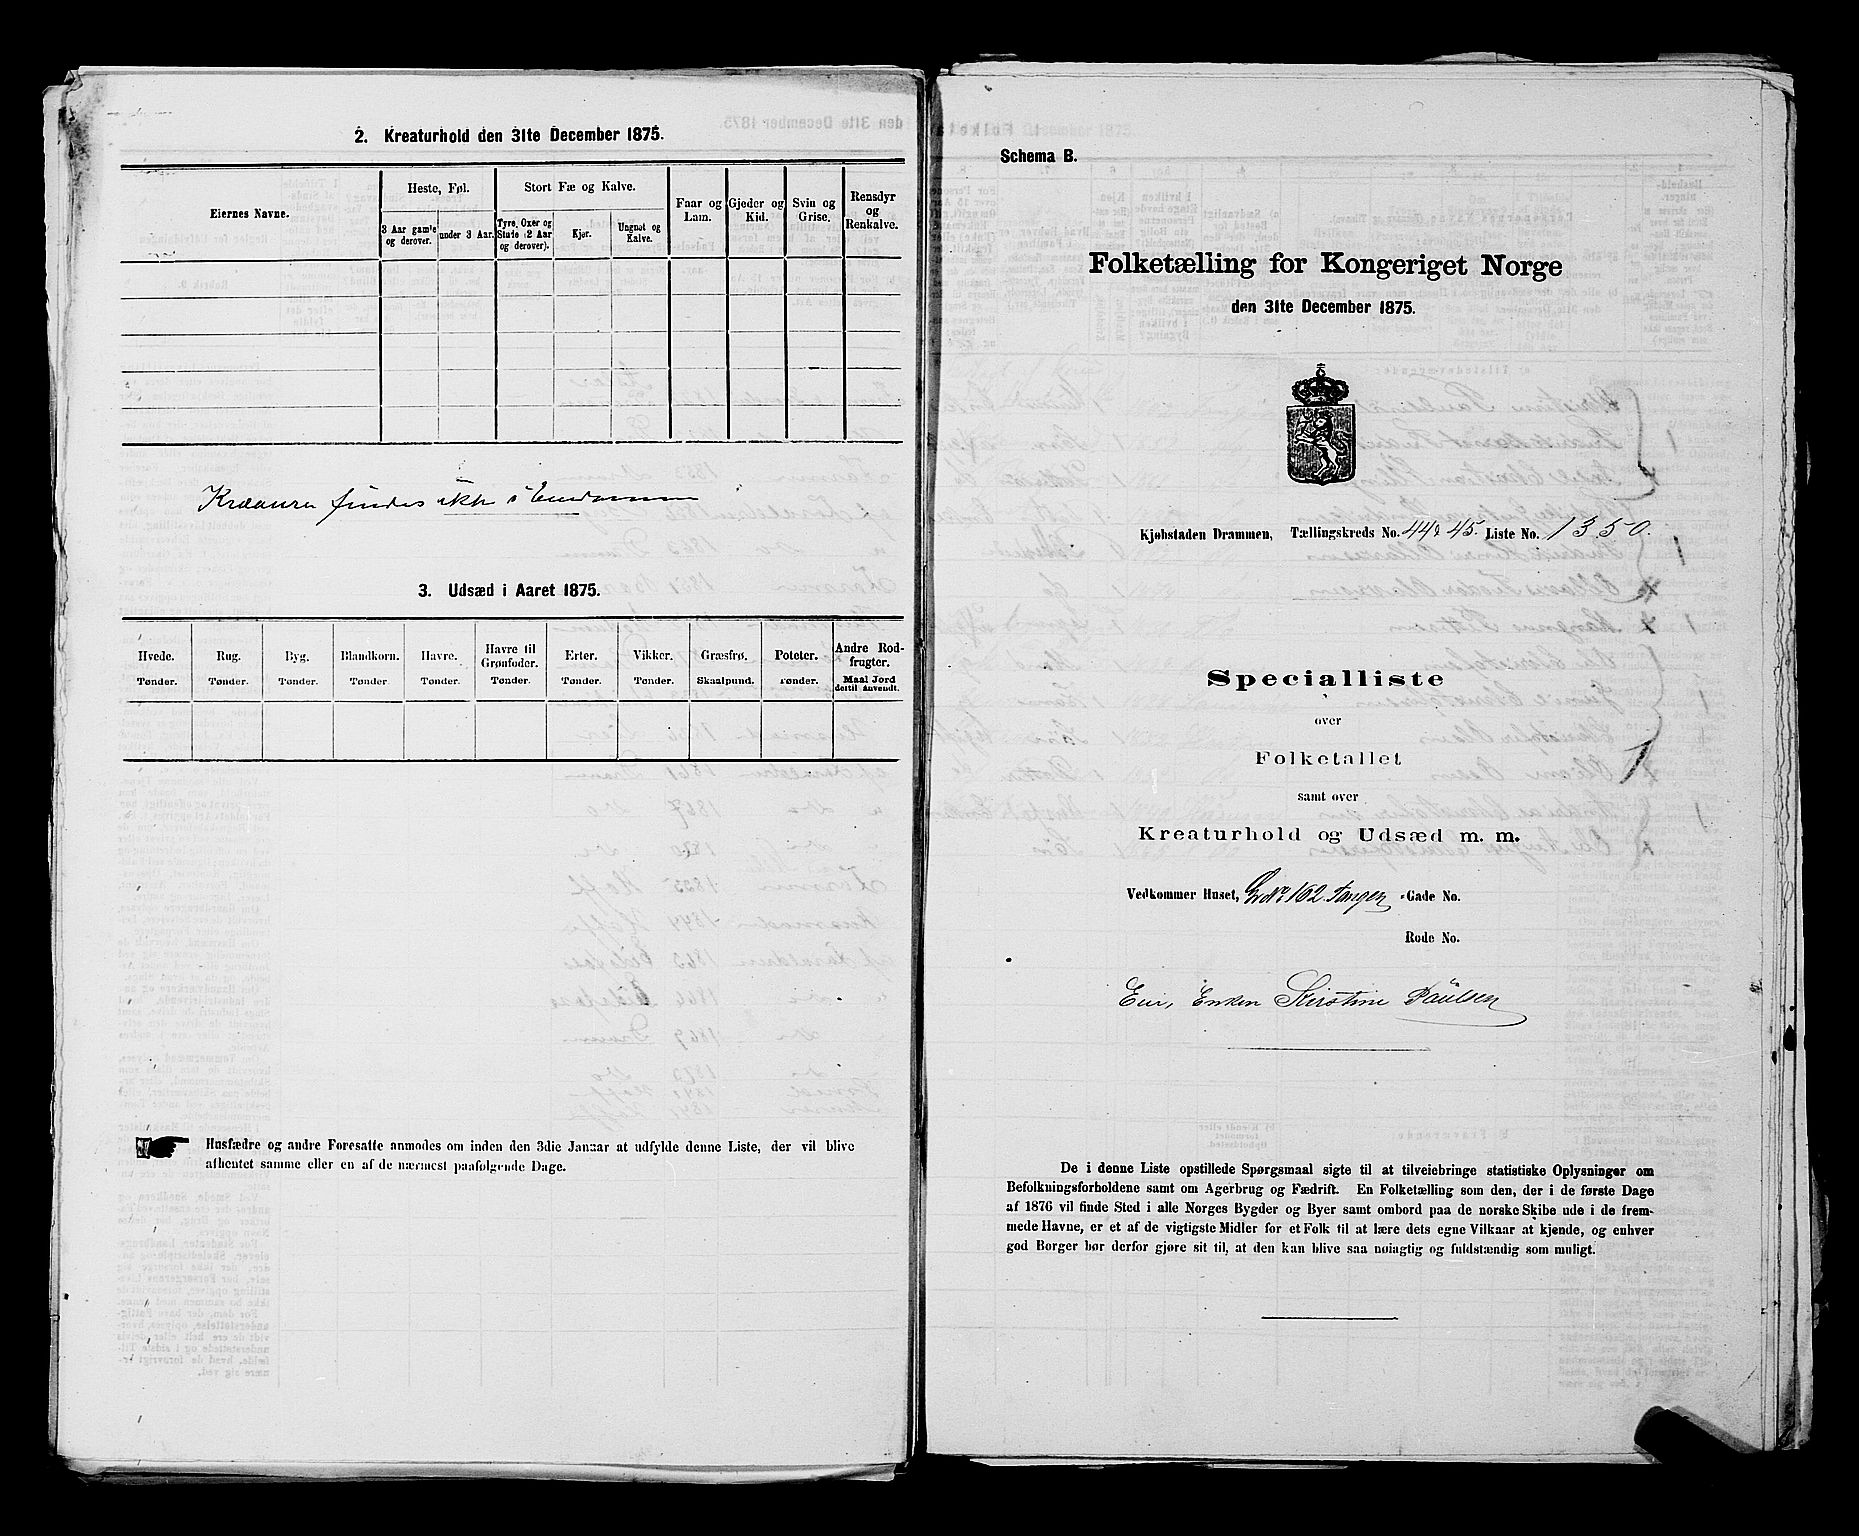 2. Kreaturhold den 31te December 1875.
Eiernes Navne.
Heste, Føl.
Stort Fæ og Kalve.
Faar og Lam.
Gjeder og Kid.
Svin og Grise.
Rensdyr og Renkalve.
3 Aar gamle og derover.
under 3 Aar.
Tyre, Oxer og Stude (2 Aar og derover).
Kjør.
Ungnøt og Kalve.
findes ikke i
3. Udsæd i Aaret 1875.
Hvede. Rug. Byg. Blandkorn. Havre. Havre til Grønfoder. Erter. Vikker. Græsfrø. Poteter. Andre Rodfrugter.
Tønder. Tønder. Tønder. Tønder. Tønder. Tønder. Tønder. Tønder. Skaalpund. Tønder. Maal Jord dertil anvendt.
Husfædre og andre Foresatte anmodes om inden den 3die Januar at udfylde denne Liste, der vil blive
afhentet samme eller en af de nærmest paafølgende Dage.
Schema B.
Folketælling for Kongeriget Norge
den 31te December 1875.
Kjøbstaden Drammen, Tællingskreds No. 44 & 45. Liste No. 1350.
Specialliste
over
Folketallet
samt over
Kreaturhold og Udsæd m. m.
Vedkommer Huset, 162. Tangen Gade No.
Rode No.
Eier, Enken Kirstine Paulsen
De i denne Liste opstillede Spørgsmaal sigte til at tilveiebringe statistiske Oplysninger om
Befolkningsforholdene samt om Agerbrug og Fædrift. En Folketælling som den, der i de første Dage
af 1876 vil finde Sted i alle Norges Bygder og Byer samt ombord paa de norske Skibe ude i de frem-
mede Havne, er et af de vigtigste Midler for et Folk til at lære dets egne Vilkaar at kjende, og enhver
god Borger bør derfor gjøre sit til, at den kan blive saa nøiagtig og fuldstændig som muligt.